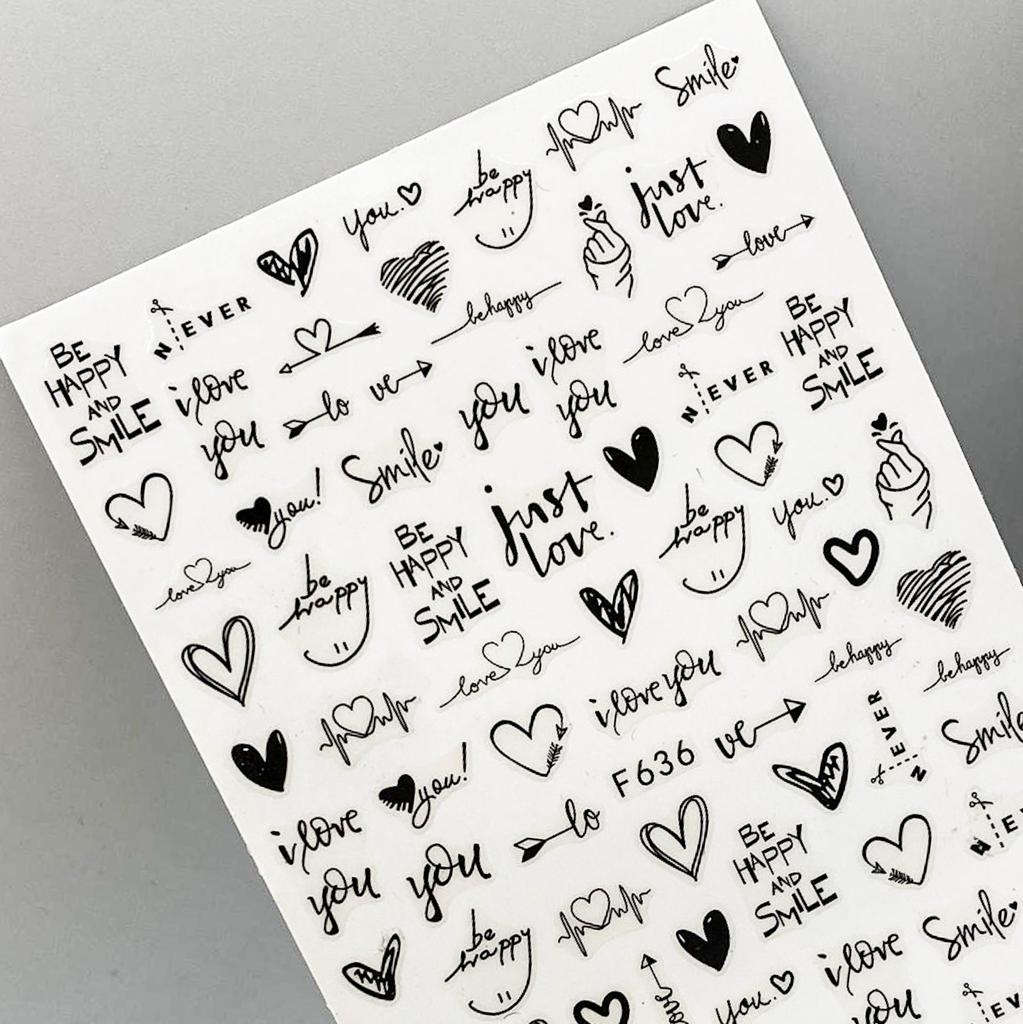 Smile
just
love.
be
happy
you.
love
NEVER
behappy
love you
BE
HAPPY
AND
SMILE
i love
you
lo ve
you
i love
you
NEVER
BE
HAPPY
AND
SMILE
you!
Smile
just
love.
BE
HAPPY
AND
SMILE
be
happy
you.
love you
be
happy
love you
i love you
behappy
behappy
NEVER
Smile
you!
F636
ve
lo
i love
you
you
BE
HAPPY
AND
SMILE
NEVER
be
happy
Smile
i love
you
you.
NEVER